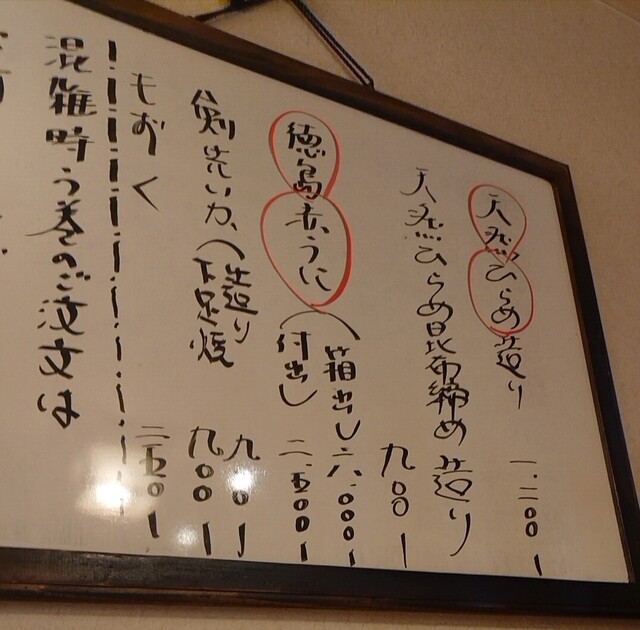 天然ひらめ造り 一、二〇〇ー
天然ひらめ昆布締め造り 九〇〇ー
徳島赤うに
箱出し 六、〇〇〇ー
付出し 二、五〇〇ー
剣先いか
造り 九〇〇ー
下足焼 九〇〇ー
もずく 二五〇ー
混雑時う巻のご注文は